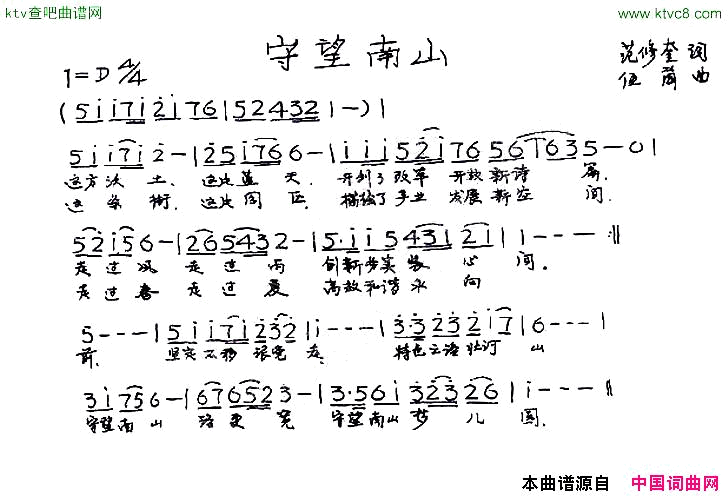 ktv查吧曲谱网 www.ktvc8.com
守望南山
1=D 4/4 范修奎 词
伍嵩 曲
(5 i i 7 i 2 i 7 6 | 5 2 4 3 2 | 1 -) |
5 i i 7 i 2 - | 2 5 i 7 6 6 - | i i i 5 2 i 7 6 5 6 7 6 3 5 - 0 |
这方沃土、这片蓝天、开创了改革开放新诗篇、
这条街、这片园区、描绘了事业发展新空间.
5 2 i 5 6 - | 2 6 5 4 3 2 - | 5 · i i 5 4 3 1 2 i | 1 - - - :‖
走过风走过雨 创新 心间.
走过春走过夏 高放和谐永向
5 - - - | 5 i i 7 i 2 3 2 | i - - - | 3 · 3 2 3 2 i 7 | 6 - - - |
前. 坚定不移跟党走. 特色之路壮河山
3 i 7 5 6 - | 6 7 6 5 2 3 - | 3 · 5 6 i 3 2 3 2 6 | i - - - ‖
守望南山 路更宽 守望南山梦儿圆.
本曲谱源自 中国词曲网